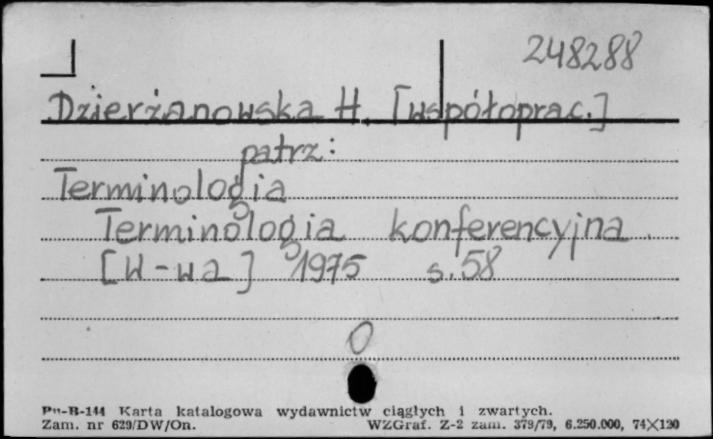 248288
Dzierżanowska H. [współoprac.]
patrz:
Terminologia
Terminologia konferencyjna.
[W-wa] 1975 s. 58
Pu-B-144 Karta katalogowa wydawnictw ciągłych i zwartych.
Zam. nr 629/DW/On. WZGraf. Z-2 zam. 379/79, 6.250.000, 74×120